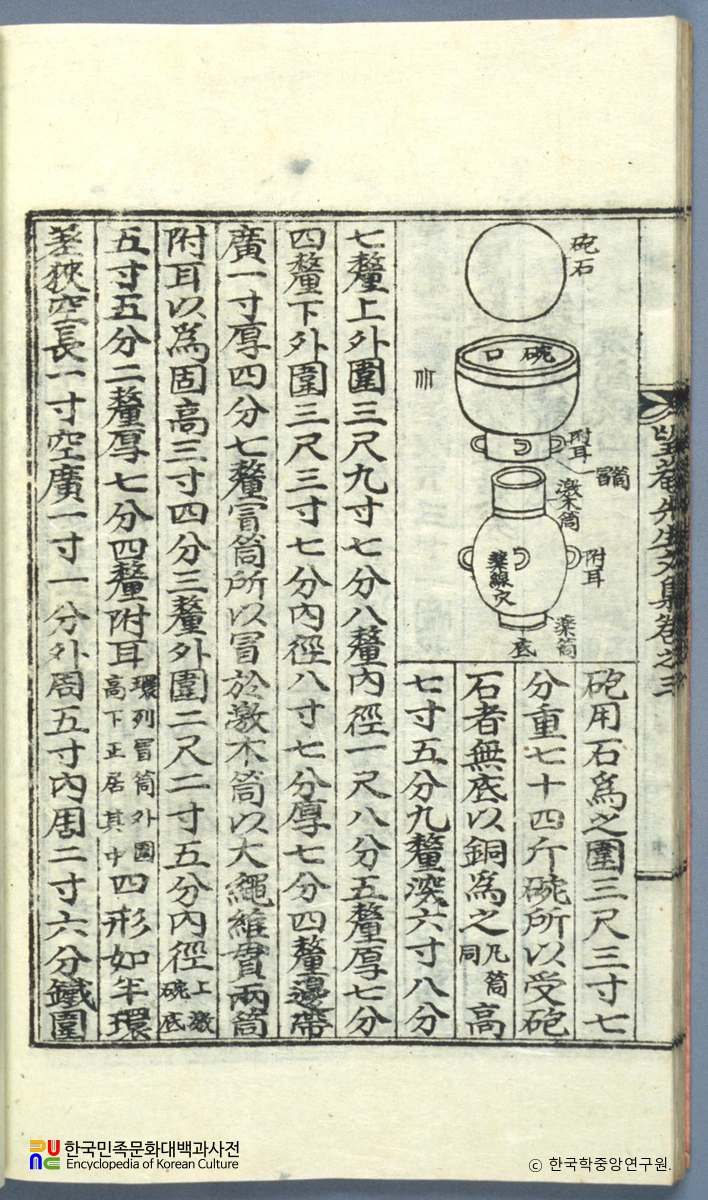 望菴先生文集卷之三
砲石
碗口
附耳
冒筒
激木筒
附耳
藥線穴
藥筒
底
砲用石爲之圍三尺三寸七
分重七十四斤碗所以受砲
石者無底以銅爲之凡筒同高
七寸五分九釐深六寸八分
七釐上外圍三尺九寸七分八釐內徑一尺八分五釐厚七分
四釐下外圍三尺三寸七分內徑八寸七分厚七分四釐邊帶
廣一寸厚四分七釐冒筒所以冒於激木筒以大繩維貫兩筒
附耳以爲固高三寸四分三釐外圍二尺二寸五分內徑上激碗底
五寸五分二釐厚七分四釐附耳環列冒筒外圍高下正居其中四形如半環
差狹空長一寸空廣一寸一分外周五寸內周二寸六分鐵圍
한국민족문화대백과사전
Encyclopedia of Korean Culture
ⓒ 한국학중앙연구원